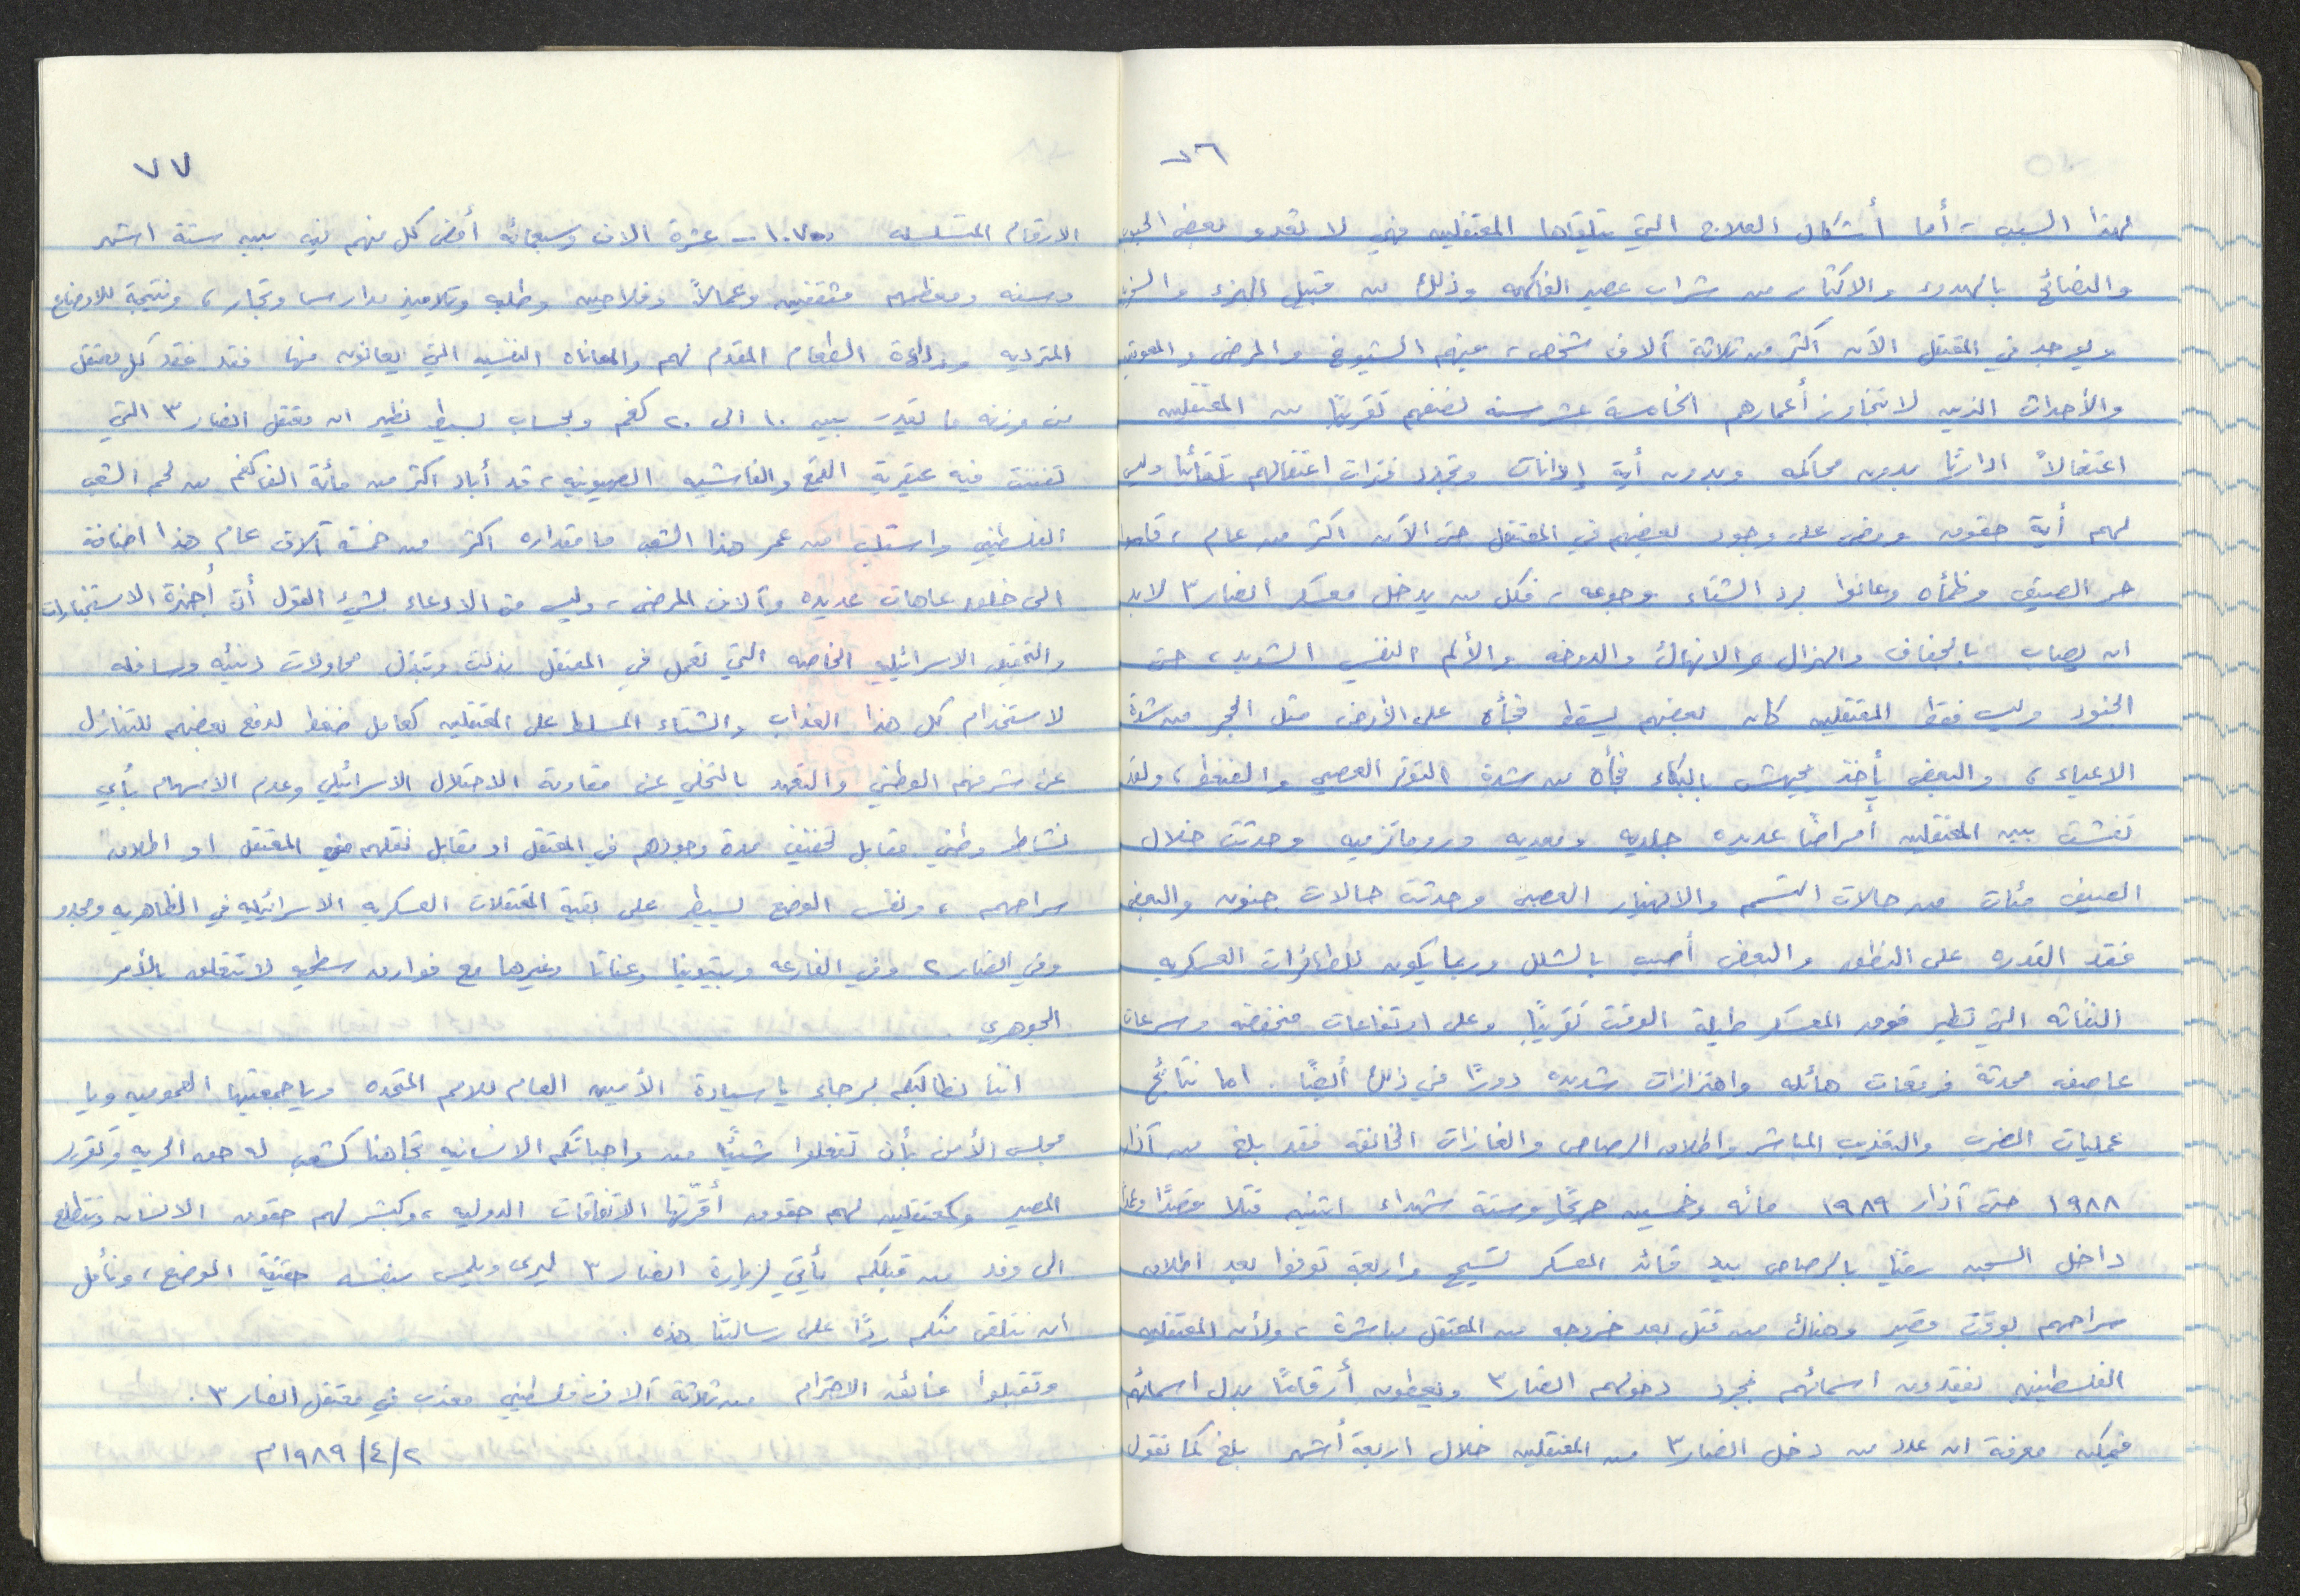 ٧٦
لهذا السبب ، أما أشكال العلاج التي يتلقاها المعتقلين فهي لا تعدو بعض الحبوب
والنصائح بالهدوء والاكثار من شراب عصير الفاكهه وذلك من قبيل الهزء والسخرية
ويوجد في المعتقل الآن اكثر من ثلاثة آلاف شخص ، منهم الشيوخ والمرضى والمعوقين
والأحداث الذين لا تتجاوز أعمارهم الخامسة عشر سنة نصفهم تقريبًا من المعتقلين
اعتقالاً اداريًا بدون محاكمه وبدون أية إدانات وتجدد فترات اعتقالهم تلقائيًا وليس
لهم أية حقوق ومضى على وجود بعضهم في المعتقل حتى الآن اكثر من عام ، قاسوا
حر الصيف وظمأه وعانوا برد الشتاء وجوعه ، فكل من يدخل معسكر انصار ٣ لابد
ان يصاب بالجفاف والهزال والانهاك والدوخه والألم النفسي الشديد ، حتى
الجنود وليس فقط المعتقلين كان بعضهم يسقط فجأة على الأرض مثل الحجر من شدة
الاعياء ، والبعض يأخذ يجهش بالبكاء فجأة من شدة التوتر العصبي والضغط ، ولقد
تفشت بين المعتقلين أمراضًا عديده جلديه ومعديه وروماتزميه وحدثت خلال
الصيف مئات من حالات التسمم والانهيار العصبي وحدثت حالات جنون والبعض
فقد القدره على النطق والبعض أصيب بالشلل وربما يكون للطائرات العسكريه
النفاثه التي تطير فوق المعسكر طيلة الوقت تقريبًا وعلى ارتفاعات منخفضه وسرعات
عاصفه محدثة فرقعات هائله واهتزازات شديده دورًا في ذلك أيضًا . اما نتائج
عمليات الضرب والتعذيب المباشر واطلاق الرصاص والغازات الخانقه فقد بلغ من آذار
١٩٨٨ حتى آذار ١٩٨٩ مائه وخمسين جريحًا وستة شهداء اثنين قتلا قصدًا وعمدًا
داخل السجن رميًا بالرصاص بيد قائد المعسكر تسيمح واربعة توفوا بعد اطلاق
سراحهم بوقت قصير وهناك من قتل بعد خروجه من المعتقل مباشرة ، ولأن المعتقلين
الفلسطينين يفقدون اسمائهم بمجرد دخولهم انصار ٣ ويعطون أرقامًا بدل اسمائهم
فيمكن معرفة ان عدد من دخل انصار ٣ من المعتقلين خلال اربعة أشهر بلغ كما تقول
٧٧
الارقام المتسلسله ١٠٧٠٠ – عشرة الاف وسبعمائه أمضى كل منهم فيه بين ستة اشهر
وسنه ومعظمهم مثقفين وعمالاً وفلاحين وطلبه وتلاميذ مدارس وتجار ، ونتيجة للاوضاع
المترديه ورداءة الطعام المقدم لهم والمعاناه النفسيه التي يعانون منها فقد فقد كل معتقل
من وزنه ما يقدر بين ١٠ الى ٢٠ كغم وبحساب بسيط نظهر ان معتقل انصار ٣ التي
تفننت فيه عبقرية القمع والفاشيه الصهيونيه ، قد أباد اكثر من مائة الف كغم من لحم الشعب
الفلسطيني واستلب من عمر هذا الشعب ما مقداره اكثر من خمسة آلاف عام هذا اضافة
الى خلق عاهات عديده وآلاف المرضى ، وليس من الادعاء بشيء القول أن أجهزة الاستخبارات
والتحقيق الاسرائيلي الخاصه التي تعمل في المعتقل بذلت وتبذل محاولات دنيئه وسافله
لاستخدام كل هذا العذاب والشقاء المسلط على المعتقلين كعامل ضغط لدفع بعضهم للتنازل
عن شرفهم الوطني والتعهد بالتخلي عن مقاومة الاحتلال الاسرائيلي وعدم الاسهام بأي
نشاط وطني مقابل تخفيف مدة وجودهم في المعتقل او مقابل نقلهم من المعتقل او اطلاق
سراحهم ، ونفس الوضع يسيطر على بقية المعتقلات العسكريه الاسرائيليه في الظاهريه ومجدو
وفي انصار ٢ وفي الفارعه وبيتونيا وعناتا وغيرها مع فوارق سطحيه لا تتعلق بالأمر
الجوهري .
اننا نطالبكم برجاء يا سيادة الأمين العام للامم المتحده ويا جمعيتها العموميه ويا
مجلس الأمن بأن تفعلوا شيئًا من واجباتكم الانسانيه تجاهنا كشعب له حق الحريه وتقرير
المصير وكمعتقلين لهم حقوق أقرّتها الاتفاقات الدوليه ، وكبشر لهم حقوق الانسان ونتطلع
الى وفد من قبلكم يأتي لزيارة انصار ٣ ليرى ويلمس بنفسه حقيقة الوضع ، ونأمل
ان نتلقى منكم ردًا على رسالتنا هذه .
وتقبلوا فائق الاحترام من ثلاثة آلاف فلسطيني معذب في معتقل انصار ٣ .
٢/٤/١٩٨٩م